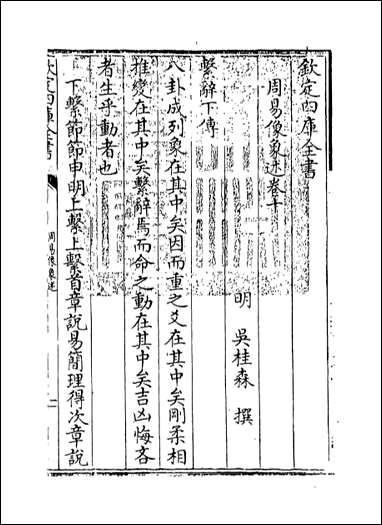 欽定四庫全書
周易像象述卷十
明 吳桂森 撰
繫辭下傳
八卦成列象在其中矣因而重之爻在其中矣剛柔相
推變在其中矣繫辭焉而命之動在其中矣吉凶悔吝
者生乎動者也
下繫節節申明上繫上繫首章說易簡理得次章說
欽定四庫全書
周易像象述